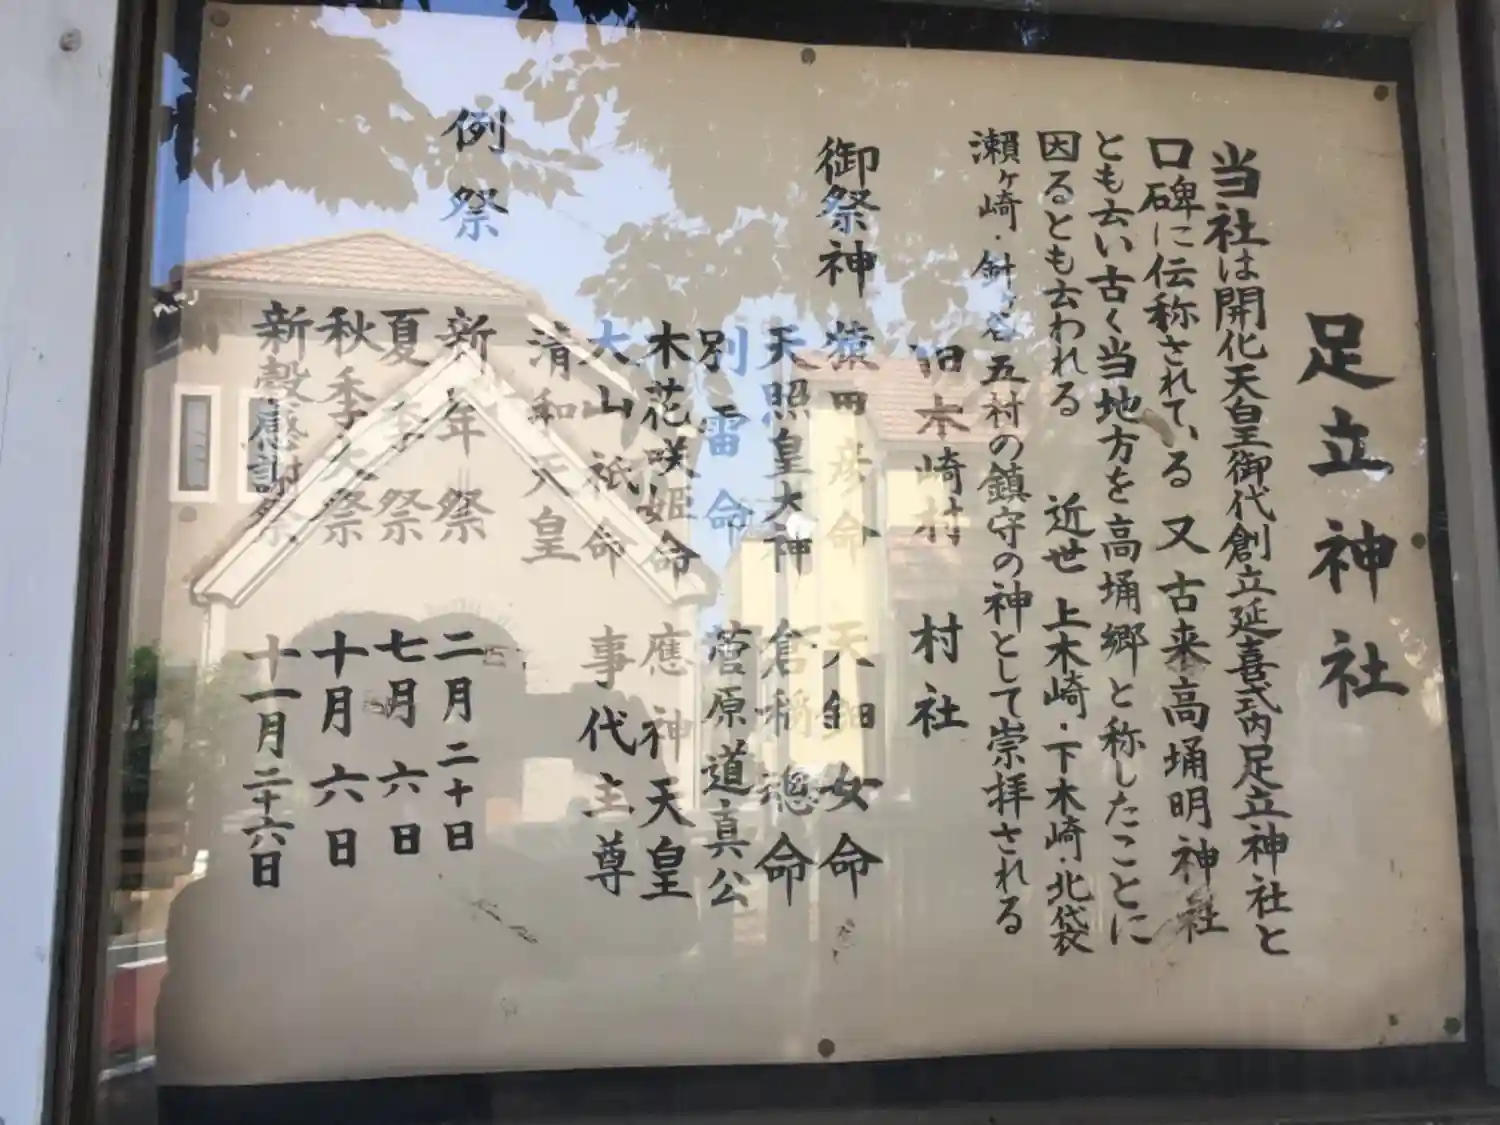 足立神社
当社は開化天皇御代創立延喜式内足立神社と
口碑に伝称されている 又古来高埇明神社
とも去い古く当地方を高埇郷と称したことに
因るとも去われる 近世 上木崎・下木崎・北袋
瀬ヶ崎・針ヶ谷五村の鎮守の神として崇拝される
旧木崎村 村社
御祭神 猿田彦命 天鈿女命
天照皇大神 倉稲魂命
別雷命 菅原道真公
木花咲姫命 應神天皇
大山祇命 事代主尊
清和天皇
例祭 新年祭 二月二十日
夏季祭 七月六日
秋季大祭 十月六日
新穀感謝祭 十一月二十六日